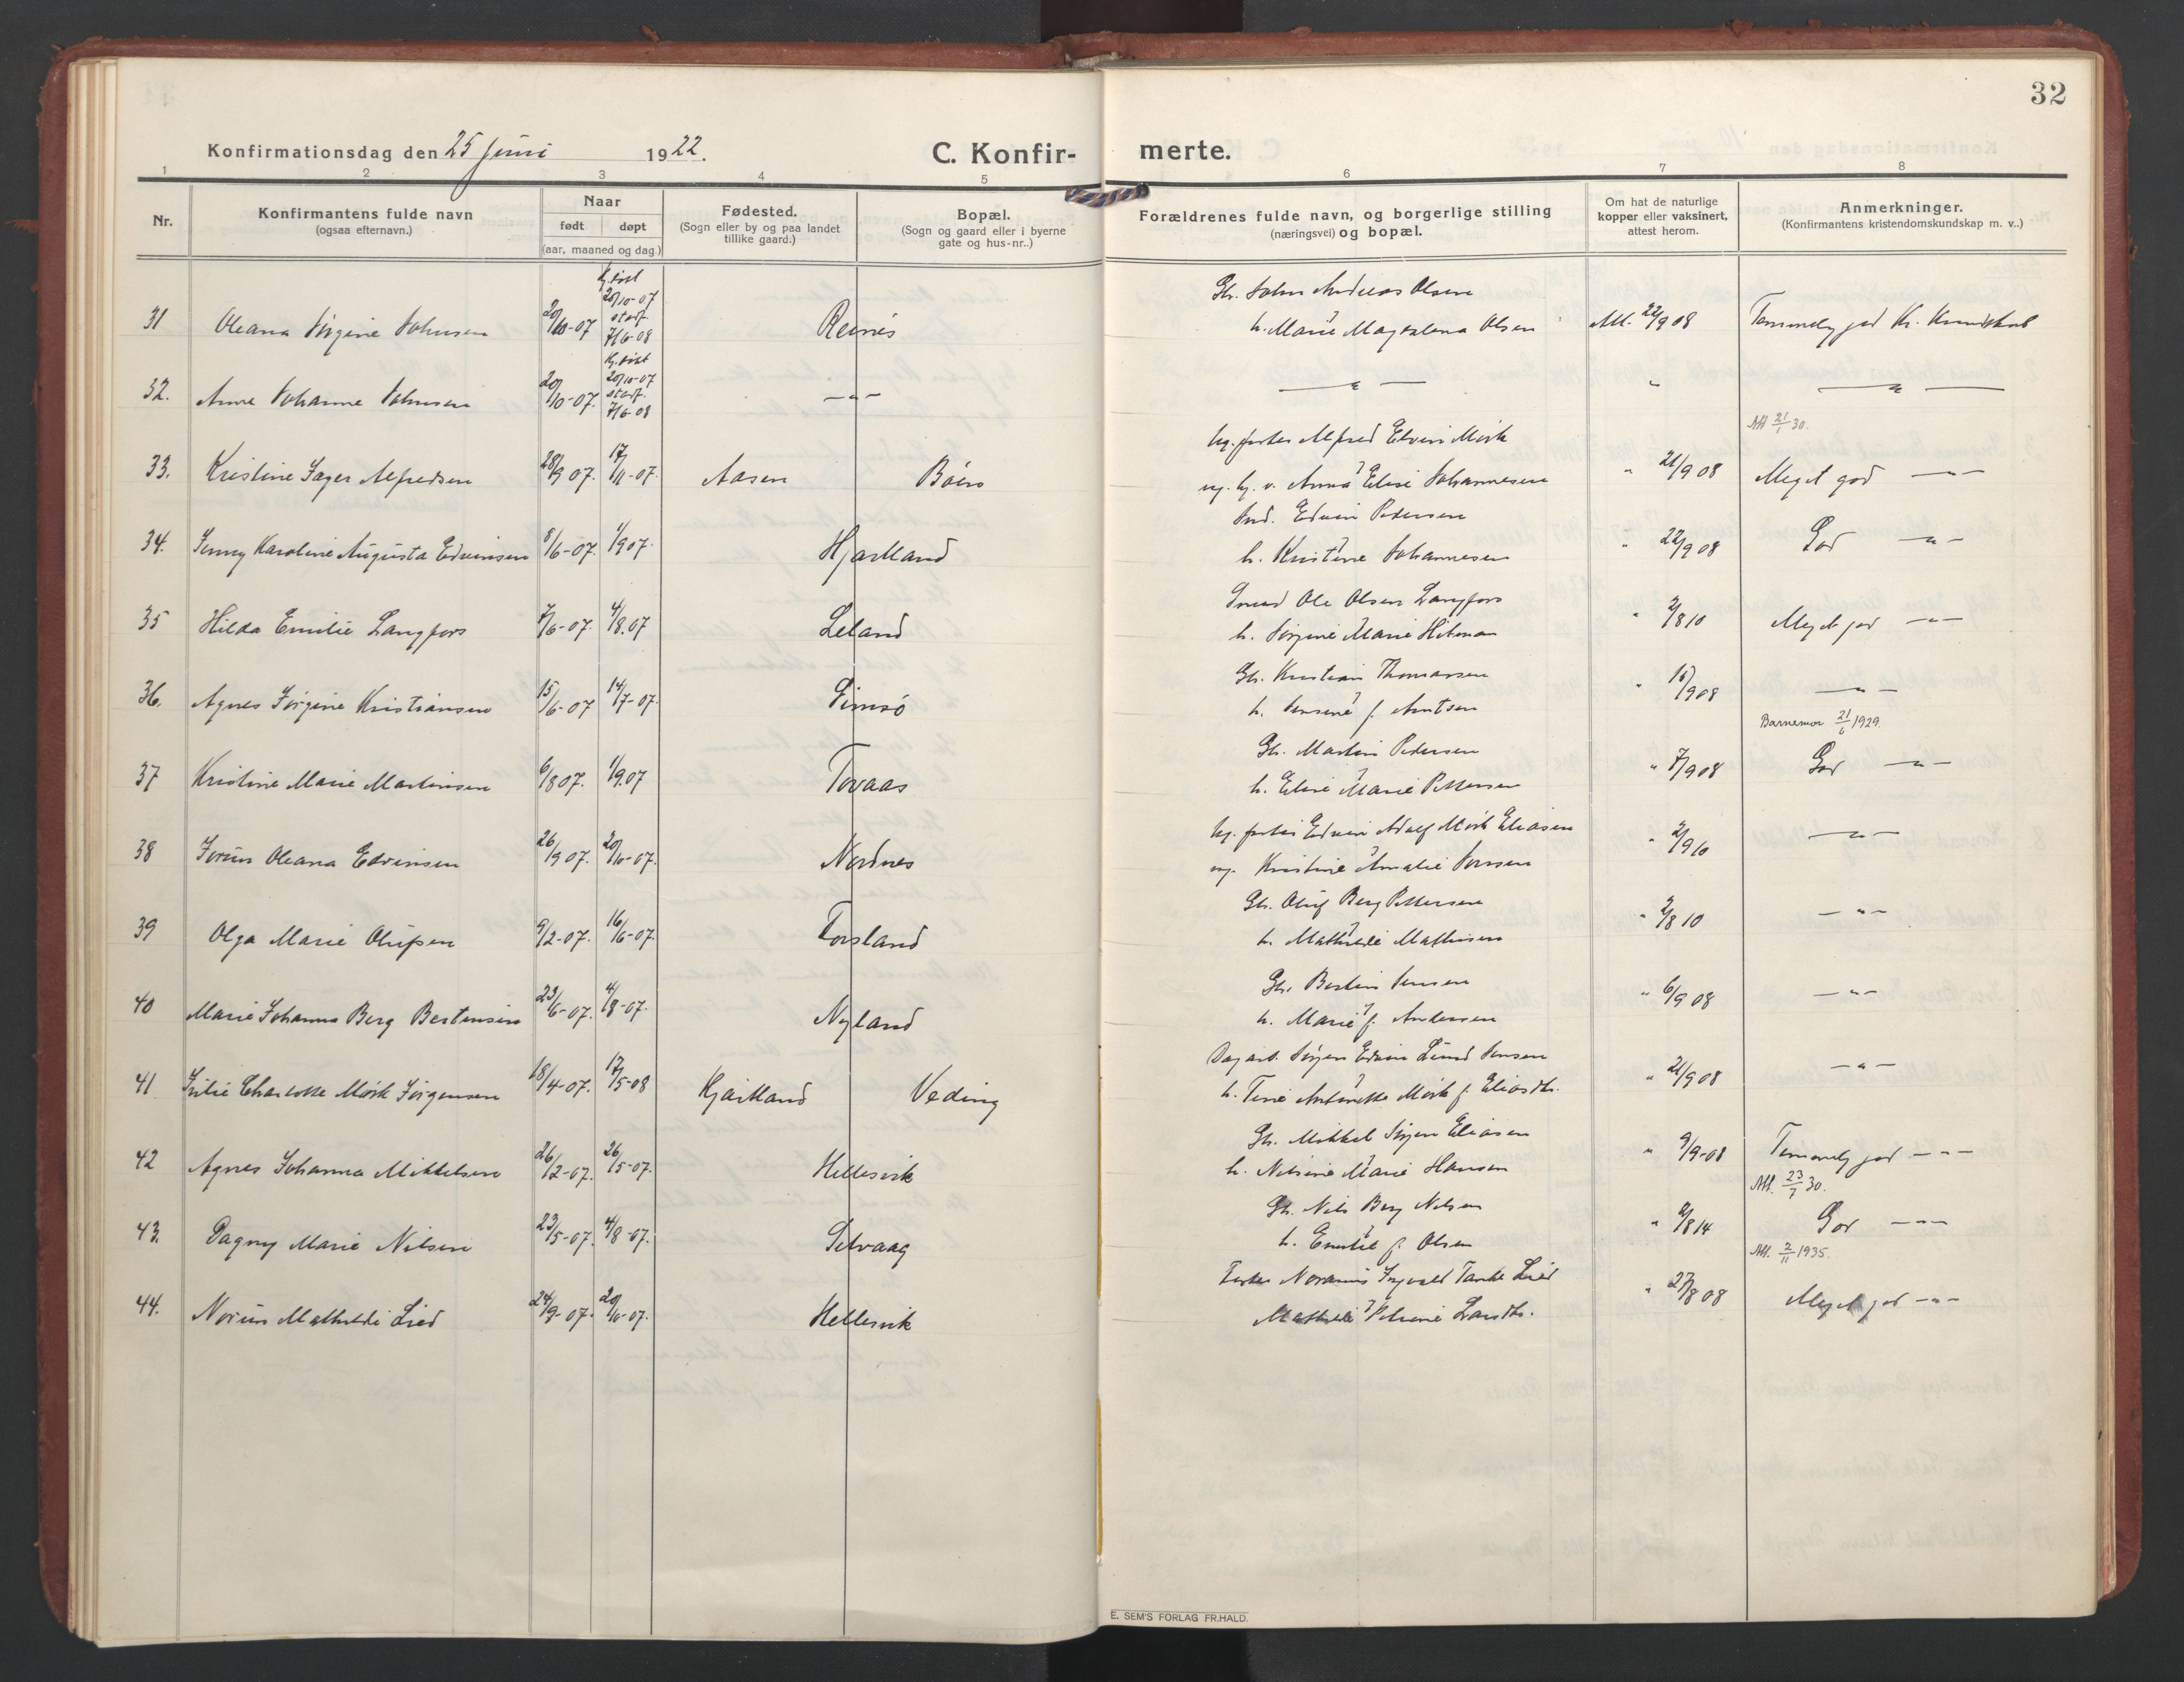 32
Konfirmationsdag den 25 juni 1922. C. Konfir- merte.
1 2 3 4 5 6 7 8
Nr. Konfirmantens fulde navn (ogsaa efternavn.) Naar født døpt (aar, maaned og dag.) Fødested. (Sogn eller by og paa landet tillike gaard.) Bopæl. (Sogn og gaard eller i byerne gate og hus-nr..) Forældrenes fulde navn, og borgerlige stilling (næringsvei) og bopæl. Om hat de naturlige kopper eller vaksinert, attest herom. Anmerkninger. (Konfirmantens kristendomskundskap m. v..)
hj.døbt 20/10-07 stadf. 7/6-08
Gb. Johan Andreas Olsen
31 Oleana Jørgine Johnsen 20/10-07 Reines h. Marie Magdalena Olsen Att. 22/9 08 Temmelig god Kr. Kundskab
hj.døbt 20/10-07 stadf. 7/6-08
32. Anne Johanne Johnsen 20/10-07. —"— —"— " —"—
Att 21/1 30.
Ug. fisker Alfred Edvin Mørk
33. Kristine Jager Alfredsen 28/9 07. 17/11-07. Aasen Bøen ug. hj. v. Anna Elise Johannesen " 21/9 08 Meget god —"—
Ind. Edvin Pedersen
34. Jenny Karoline Augusta Edvinsen 8/6-07. 1/9 07. Hjartland h. Kristine Johannesen " 22/9 08 God —"—
Smed Ole Olsen Langfors
35 Hilda Emilie Langfors 7/6-07. 4/8.07 Leland h. Jørgine Marie Hitman " 2/8 10 Meget god —"—
Gb. Kristian Thomassen
36. Agnes Jørgine Kristiansen 15/6-07 14/7-07. Simsø h. Jensine f. Arntsen " 15/9 08 —"—
Barnemor 21/6 1929.
Gb. Martin Pedersen
37 Kristine Marie Martinsen 6/8 07. 1/9.07 Tovaas h. Elise Marie Pettersen " 7/9 08 God —"—
Ug. fisker Edvin Adolf Mørk Eliasen
38 Jorun Oleana Edvinsen 26/9 07. 20/10-07. Nordnes ug. Kristine Amalie Jonsen " 2/9 10 —"—
Gb. Oluf Berg Pettersen
39 Olga Marie Olufsen 9/2-07. 16/6-07. Forsland h. Mathilde Mathisen " 2/8 10 —"—
Gb. Bertin Jensen
40 Marie Johanna Berg Bertinsen 23/6-07. 4/8-07. Nyland h. Marie f. Andersen " 6/9 08 —"—
Dagarb. Jørgen Edvin Lund Jensen
41 Julie Charlotte Mørk Jørgensen 18/4-07. 17/5-08 Hjartland Veding h. Tine Antonette Mørk f. Eliasdtr. " 21/9 08 —"—
Gb. Mikkel Jørgen Eliasen
42 Agnes Johanna Mikkelsen 26/2-07. 26/5-07. Hellesvik h. Nilsine Marie Hansen " 9/9-08 Temmelig god —"—
Att. 23/7 30.
Gb. Nils Berg Nilsen
43. Dagny Marie Nilsen 23/5-07. 4/8-07. Selvaag h. Emilie f. Olsen " 2/8 14 God —"—
Att. 2/11 1935.
Fisker Noranus Ingvald Tanke Lied
44. Norun Mathilde Lied 24/9-07. 20/10-07. Hellesvik Mathilde Pelsine Larsdtr. " 27/8 08 Meget god —"—
E. SEM'S FORLAG FR.HALD.